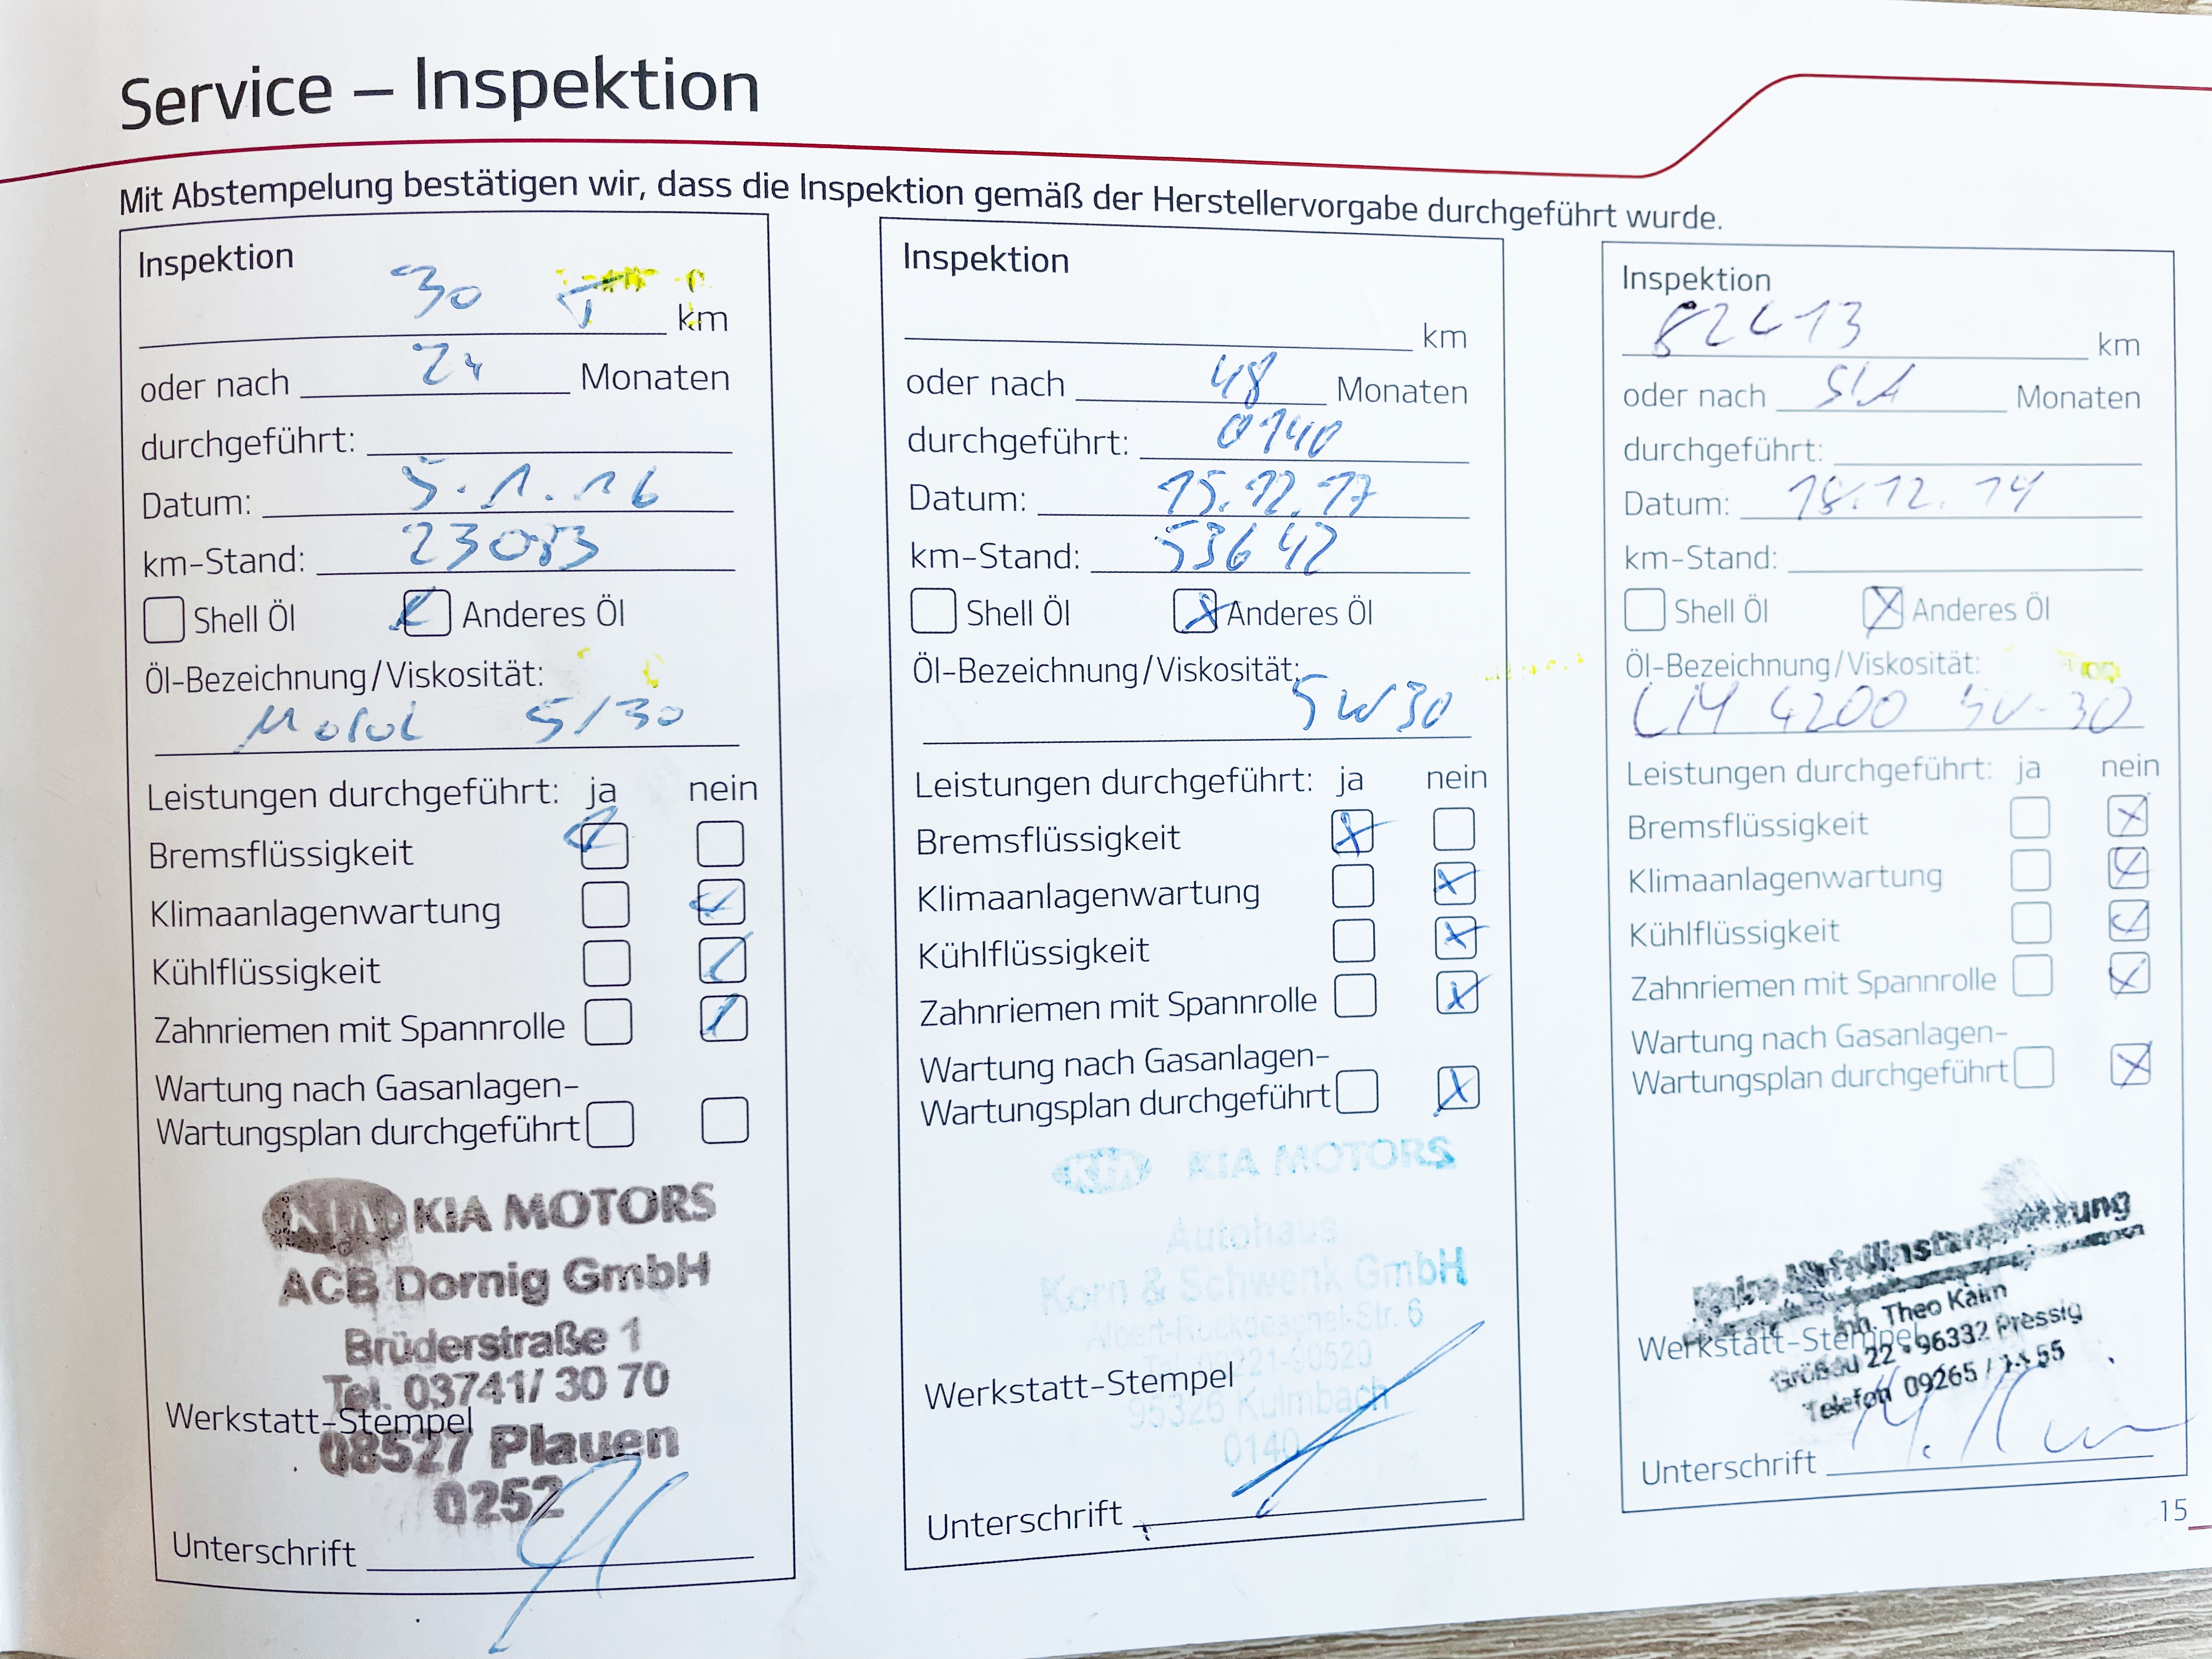 Service – Inspektion
Mit Abstempelung bestätigen wir, dass die Inspektion gemäß der Herstellervorgabe durchgeführt wurde.
Inspektion
30 T km
oder nach 24 Monaten
durchgeführt:
Datum: 5.1.16
km-Stand: 23083
Shell Öl Anderes Öl
Öl-Bezeichnung/Viskosität:
Motul 5/30
Leistungen durchgeführt: ja nein
Bremsflüssigkeit
Klimaanlagenwartung
Kühlflüssigkeit
Zahnriemen mit Spannrolle
Wartung nach Gasanlagen-
Wartungsplan durchgeführt
KIA KIA MOTORS
ACB Dornig GmbH
Brüderstraße 1
Tel. 03741/ 30 70
Werkstatt-Stempel
08527 Plauen
0252
Unterschrift
Inspektion
km
oder nach 48 Monaten
durchgeführt: 0140
Datum: 15.12.17
km-Stand: 53642
Shell Öl Anderes Öl
Öl-Bezeichnung/Viskosität:
5W30
Leistungen durchgeführt: ja nein
Bremsflüssigkeit
Klimaanlagenwartung
Kühlflüssigkeit
Zahnriemen mit Spannrolle
Wartung nach Gasanlagen-
Wartungsplan durchgeführt
KIA KIA MOTORS
Autohaus
Korn & Schwenk GmbH
Albert-Ruckdeschel-Str. 6
Tel. 09221-90520
Werkstatt-Stempel
95326 Kulmbach
0140
Unterschrift
Inspektion
82413 km
oder nach Monaten
durchgeführt:
Datum: 18.12.19
km-Stand:
Shell Öl Anderes Öl
Öl-Bezeichnung/Viskosität:
LM 4200 5W-30
Leistungen durchgeführt: ja nein
Bremsflüssigkeit
Klimaanlagenwartung
Kühlflüssigkeit
Zahnriemen mit Spannrolle
Wartung nach Gasanlagen-
Wartungsplan durchgeführt
Inh. Theo
Werkstatt-Stempel
22 - 96332 Pressig
Telefon 09265 /
Unterschrift
15